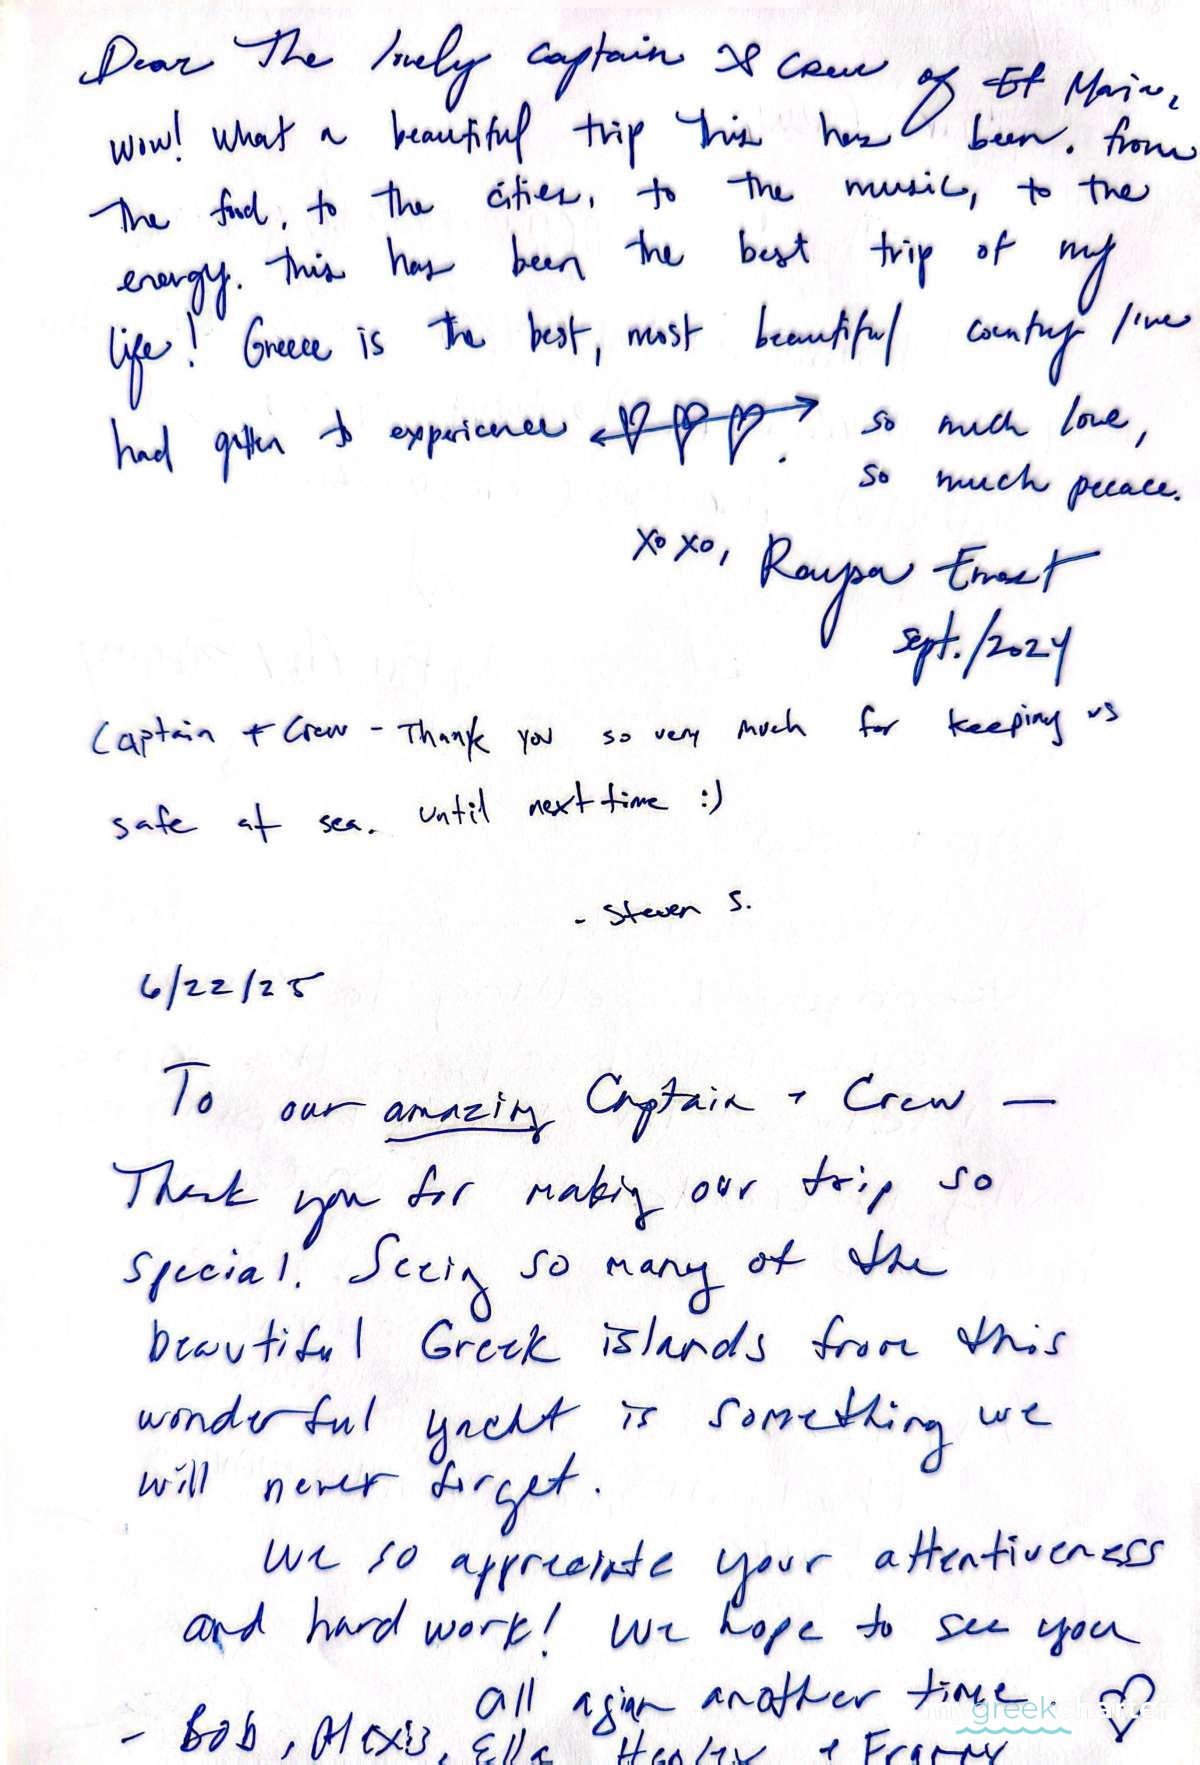 Dear The lovely captain & crew of Ef Marin,
wow! what a beautiful trip this has been. from
the food, to the cities, to the music, to the
energy. this has been the best trip of my
life! Greece is the best, most beautiful country I've
had gotten to experience
so much love,
so much peace.
xoxo,
Ernest
sept./2024
Captain + Crew - Thank you so very much for keeping us
safe at sea. until next time :)
- Steven S.
6/22/25
To our amazing Captain + Crew —
Thank you for making our trip so
special. Seeing so many of the
beautiful Greek islands from this
wonderful yacht is something we
will never forget.
We so appreciate your attentiveness
and hard work! We hope to see you
all again another time.
- Bob, Alexis, Ella, Henley + Franny
mygreekcharter